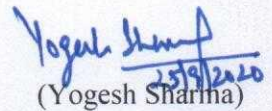 Yogesh Sharma
25/9/2020
(Yogesh Sharma)